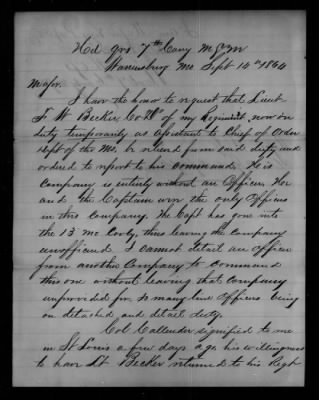 Hd Qrs 7th Cavy M.S.M
Warrensburg Mo Sept 14th 1864
Major.
I have the honor to request that Lieut
F. W. Becker, Co "D" of my Regiment, now on
duty temporarily as assistant to Chief of Ordn
Dept of the Mo. be relieved from said duty and
ordered to report to his command. His
company is entirely without an Officer. He
and the Captain were the only Officers
in this company. The Capt has gone into
the 13 Mo Cavly, thus leaving the company
unofficered. I cannot detail an officer
from another company to command
this one without leaving that company
unprovided for, so many line officers being
on detached and detail duty.
Col Callender signified to me
in St Louis a few days ago his willingness
to have Lt Becker returned to his Regt